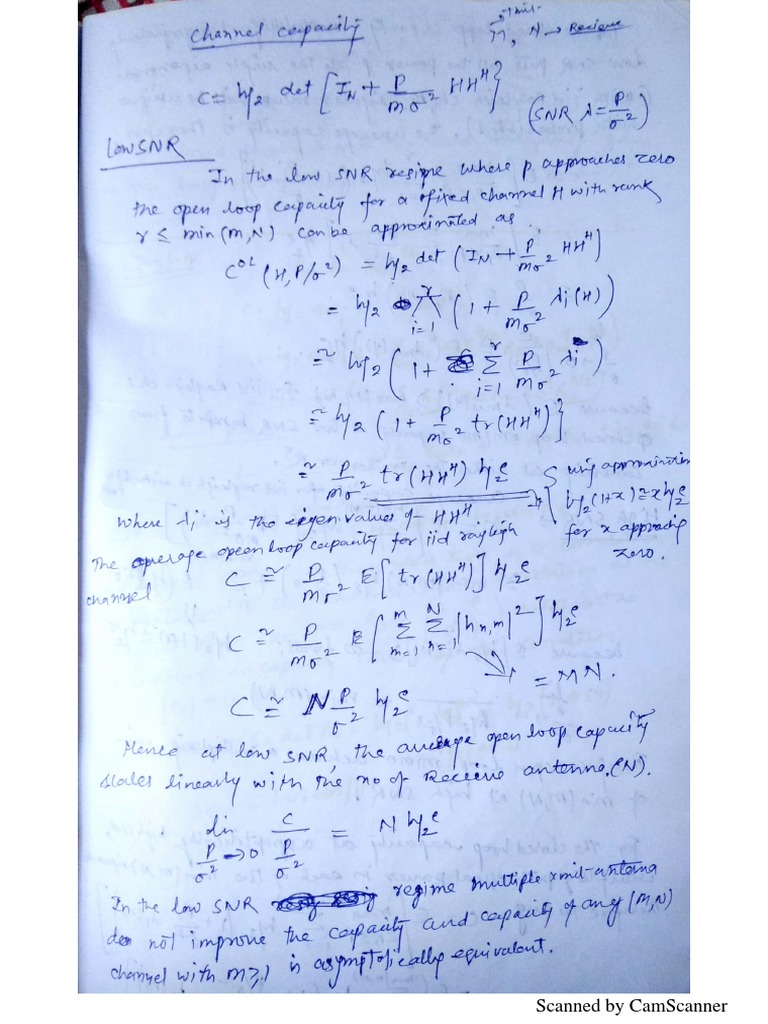 Channel capacity
xmit-
M, N → Receive
C = log2 det [I_N + P/(mσ²) HH^H]
(SNR λ = P/σ²)
Low SNR
In the low SNR regime where p approaches zero
the open loop capacity for a fixed channel H with rank
r ≤ min (M, N) can be approximated as.
C^OL (H, P/σ²) = log2 det (I_N + P/(mσ²) HH^H)
= log2 π_{i=1}^{r} (1 + P/(mσ²) λi(H))
≅ log2 (1 + Σ_{i=1}^{r} P/(mσ²) λi)
≅ log2 (1 + P/(mσ²) tr(HH^H)}
≅ P/(mσ²) tr(HH^H) log2 e
{ using approximation
log2(1+x) ≅ x log2 e
for x approaching
zero.
Where λi is the eigen values of HH^H
The average open loop capacity for iid rayleigh
channel
C ≅ P/(mσ²) E[tr(HH^H)] log2 e
C ≅ P/(mσ²) E[Σ_{m=1}^{m} Σ_{n=1}^{N} |hn,m|²] log2 e
= MN.
C ≅ N P/σ² log2 e
Hence at low SNR, the average open loop capacity
scales linearly with the no of Receive antenna. (N).
lim_{P/σ² → 0} C/(P/σ²) = N log2 e
In the low SNR regime multiple xmit-antenna
do not improve the capacity and capacity of any (M, N)
channel with M ≥ 1 is asymptotically equivalent.
Scanned by CamScanner